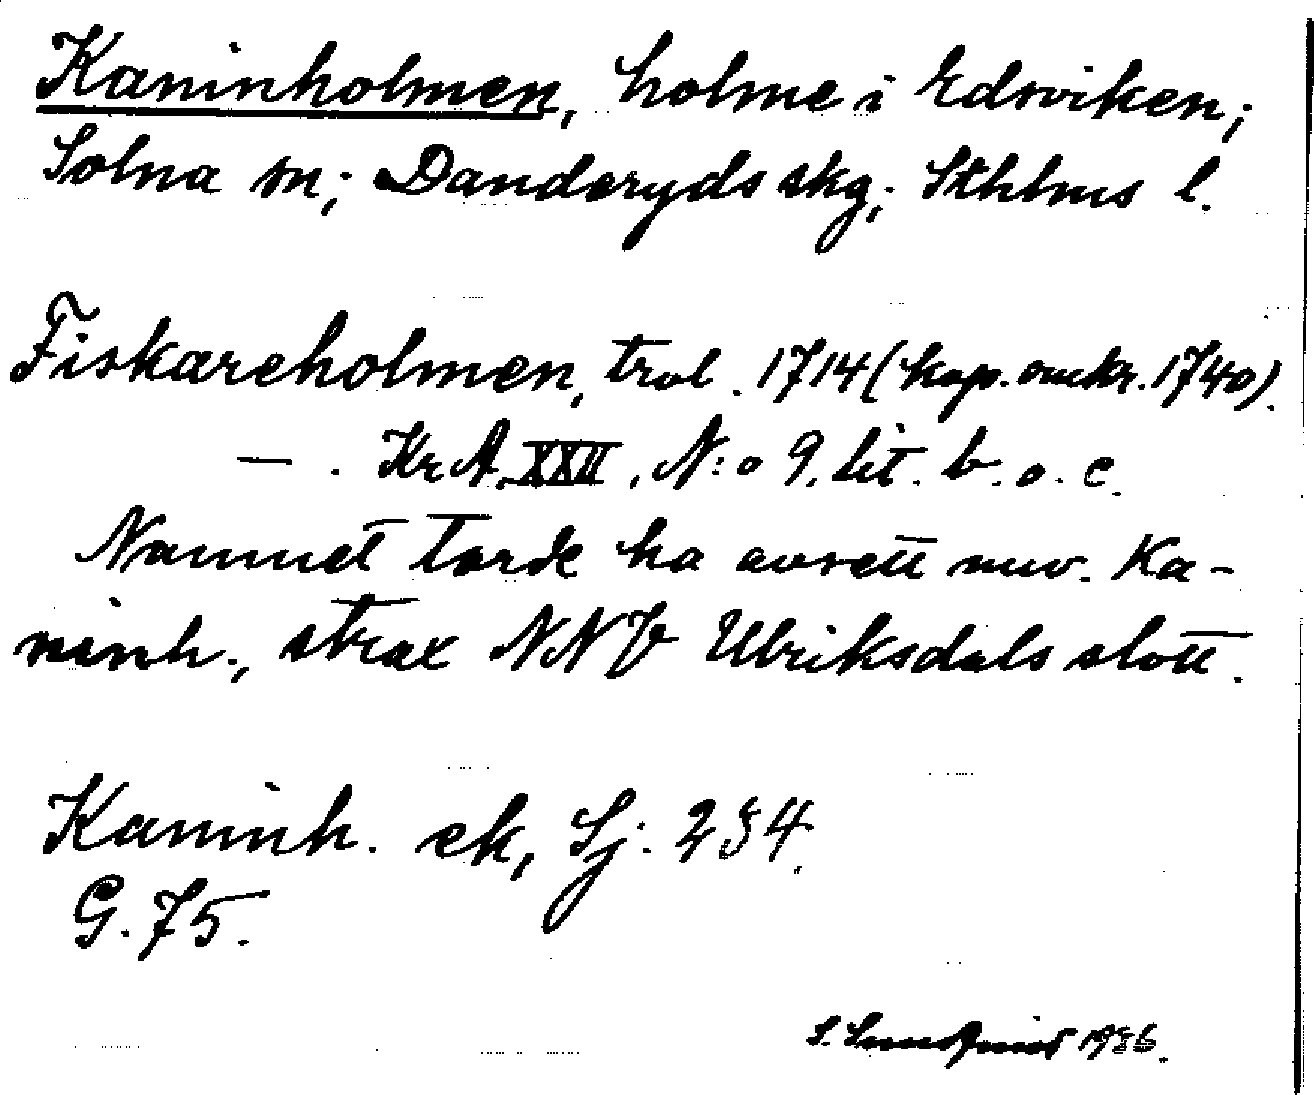 Kaninholmen, holme i Edsviken;
Solna sn; Danderyds skg; Sthlms l.
Fiskareholmen, trol. 1714 (kop. omkr. 1740).
— . KrA. XXII, N:o 9. lit. b. o. c.
Namnet torde ha avsett nuv. Ka-
ninh., strax NNV Ulriksdals slott.
Kaninh. ek, Sj. 234.
G. 75.
S. Sundqvist 1936.